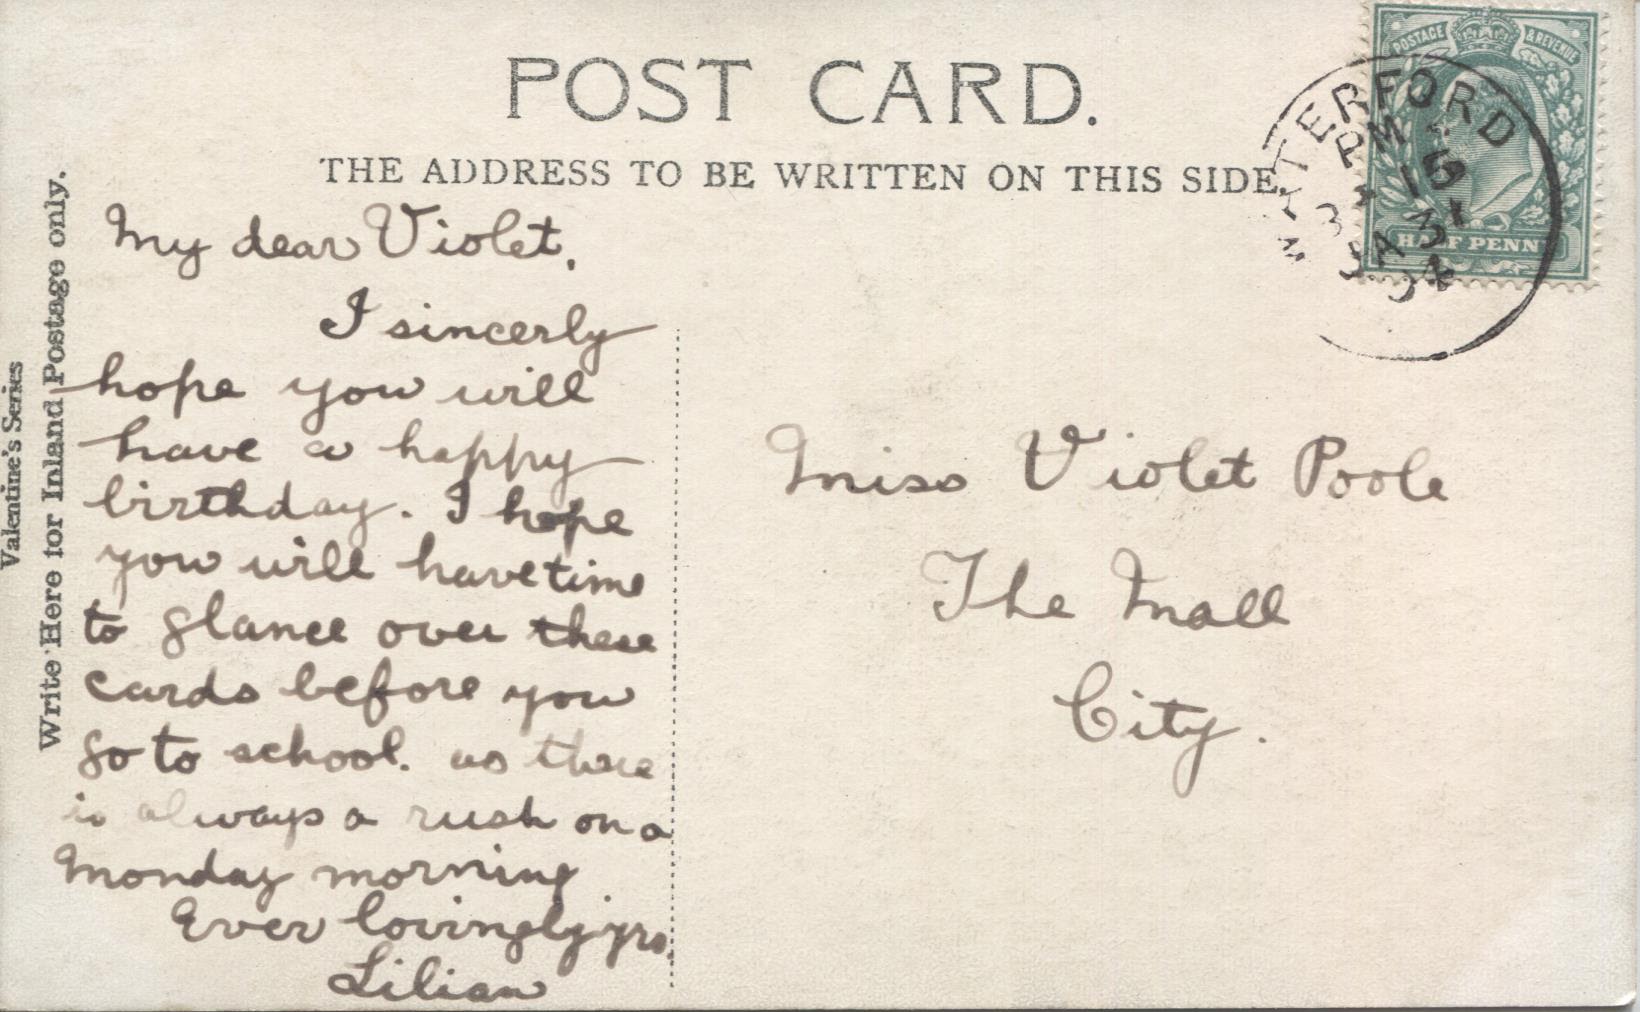 POST CARD.
THE ADDRESS TO BE WRITTEN ON THIS SIDE.
Valentine's Series
Write Here for Inland Postage only.
POSTAGE & REVENUE
HALF PENNY
WATERFORD
PM
15
JA 31
04
My dear Violet,
I sincerly
hope you will
have a happy
birthday. I hope
you will have time
to glance over these
cards before you
go to school. as there
is always a rush on a
Monday morning
Ever lovingly yrs.
Lilian
Miss Violet Poole
The Mall
City.